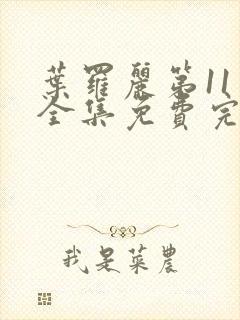 葉羅麗第11
全集免費完
我是菜農